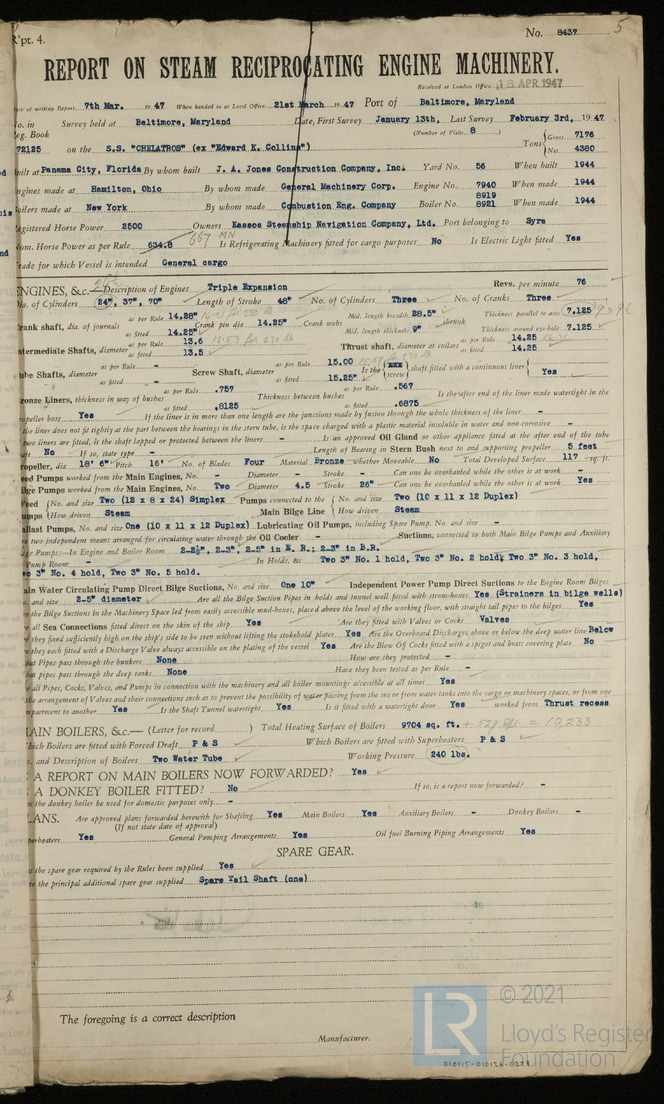 R'pt. 4.
No. 8437 5
REPORT ON STEAM RECIPROCATING ENGINE MACHINERY.
Received at London Office 18 APR 1947
of writing Report 7th Mar. 1947 When handed in at Local Office 21st March 1947 Port of Baltimore, Maryland
No. in Survey held at Baltimore, Maryland Date, First Survey January 13th, Last Survey February 3rd, 1947
Reg. Book (Number of Visits 8)
72125 on the S.S. "CHELATROS" (ex "Edward K. Collins") Tons Gross 7176 Net 4380
Built at Panama City, Florida By whom built J. A. Jones Construction Company, Inc. Yard No. 56 When built 1944
Engines made at Hamilton, Ohio By whom made General Machinery Corp. Engine No. 7940 When made 1944
Boilers made at New York By whom made Combustion Eng. Company Boiler No. 8919 8921 When made 1944
Registered Horse Power 2500 Owners Kassos Steamship Navigation Company, Ltd. Port belonging to Syra
Nom. Horse Power as per Rule 634.8 667 MN Is Refrigerating Machinery fitted for cargo purposes No Is Electric Light fitted Yes
Trade for which Vessel is intended General cargo
ENGINES, &c.—Description of Engines Triple Expansion Revs. per minute 76
Dia. of Cylinders 24", 37", 70" Length of Stroke 48" No. of Cylinders Three No. of Cranks Three
Crank shaft, dia. of journals as per Rule 14.28" as fitted 14.25" Crank pin dia. 14.25" Crank webs Mid. length breadth 28.5" Mid. length thickness 9" shrunk Thickness parallel to axis 7.125 Thickness around eye-hole 7.125
Intermediate Shafts, diameter as per Rule 13.6 as fitted 13.5 Thrust shaft, diameter at collars as per Rule 14.25 as fitted 14.25
Tube Shafts, diameter as per Rule - as fitted - Screw Shaft, diameter as per Rule 15.00 as fitted 15.25" Is the screw shaft fitted with a continuous liner Yes
Bronze Liners, thickness in way of bushes as per Rule .757 as fitted .8125 Thickness between bushes as per Rule .567 as fitted .6875 Is the after end of the liner made watertight in the
propeller boss Yes If the liner is in more than one length are the junctions made by fusion through the whole thickness of the liner -
the liner does not fit tightly at the part between the bearings in the stern tube, is the space charged with a plastic material insoluble in water and non-corrosive -
two liners are fitted, is the shaft lapped or protected between the liners - Is an approved Oil Gland or other appliance fitted at the after end of the tube
shaft No If so, state type - Length of Bearing in Stern Bush next to and supporting propeller 5 feet
Propeller, dia 18' 6" Pitch 16' No. of Blades Four Material Bronze whether Moveable No Total Developed Surface 117 sq. ft.
Feed Pumps worked from the Main Engines, No. - Diameter - Stroke - Can one be overhauled while the other is at work -
Bilge Pumps worked from the Main Engines, No. Two Diameter 4.5 Stroke 26" Can one be overhauled while the other is at work Yes
Feed Pumps No. and size Two (12 x 8 x 24) Simplex Pumps connected to the Main Bilge Line No. and size Two (10 x 11 x 12 Duplex)
How driven Steam How driven Steam
Ballast Pumps, No. and size One (10 x 11 x 12 Duplex) Lubricating Oil Pumps, including Spare Pump, No. and size -
two independent means arranged for circulating water through the Oil Cooler - Suctions, connected to both Main Bilge Pumps and Auxiliary
Bilge Pumps:—In Engine and Boiler Room 2-2½", 2-3", 2-5" in E.R.; 2-3" in B.R.
Pump Room - In Holds, &c Two 3" No. 1 hold, Two 3" No. 2 hold; Two 3" No. 3 hold,
Two 3" No. 4 hold, Two 3" No. 5 hold.
Main Water Circulating Pump Direct Bilge Suctions, No. and size One 10" Independent Power Pump Direct Suctions to the Engine Room Bilges,
No. and size 2-5" diameter Are all the Bilge Suction Pipes in holds and tunnel well fitted with strum-boxes Yes (Strainers in bilge wells)
the Bilge Suctions in the Machinery Space led from easily accessible mud-boxes, placed above the level of the working floor, with straight tail pipes to the bilges Yes
all Sea Connections fitted direct on the skin of the ship Yes Are they fitted with Valves or Cocks Valves
they fixed sufficiently high on the ship's side to be seen without lifting the stokehold plates Yes Are the Overboard Discharges above or below the deep water line Below
they each fitted with a Discharge Valve always accessible on the plating of the vessel Yes Are the Blow Off Cocks fitted with a spigot and brass covering plate No
What Pipes pass through the bunkers None How are they protected -
What pipes pass through the deep tanks None Have they been tested as per Rule -
all Pipes, Cocks, Valves, and Pumps in connection with the machinery and all boiler mountings accessible at all times Yes
the arrangement of Valves and their connections such as to prevent the possibility of water passing from the sea or from water tanks into the cargo or machinery spaces, or from one
compartment to another Yes Is the Shaft Tunnel watertight Yes Is it fitted with a watertight door Yes worked from Thrust recess
MAIN BOILERS, &c.—(Letter for record ) Total Heating Surface of Boilers 9704 sq. ft. + 529 = 10,233
Which Boilers are fitted with Forced Draft P & S Which Boilers are fitted with Superheaters P & S
No. and Description of Boilers Two Water Tube Working Pressure 240 lbs.
A REPORT ON MAIN BOILERS NOW FORWARDED? Yes
A DONKEY BOILER FITTED? No If so, is a report now forwarded? -
the donkey boiler be used for domestic purposes only -
PLANS. Are approved plans forwarded herewith for Shafting Yes Main Boilers Yes Auxiliary Boilers - Donkey Boilers -
(If not state date of approval)
Superheaters Yes General Pumping Arrangements Yes Oil fuel Burning Piping Arrangements Yes
SPARE GEAR.
the spare gear required by the Rules been supplied Yes
the principal additional spare gear supplied Spare Tail Shaft (one)
The foregoing is a correct description
Manufacturer.
LR © 2021
Lloyd's Register
Foundation
010115-010126-0228